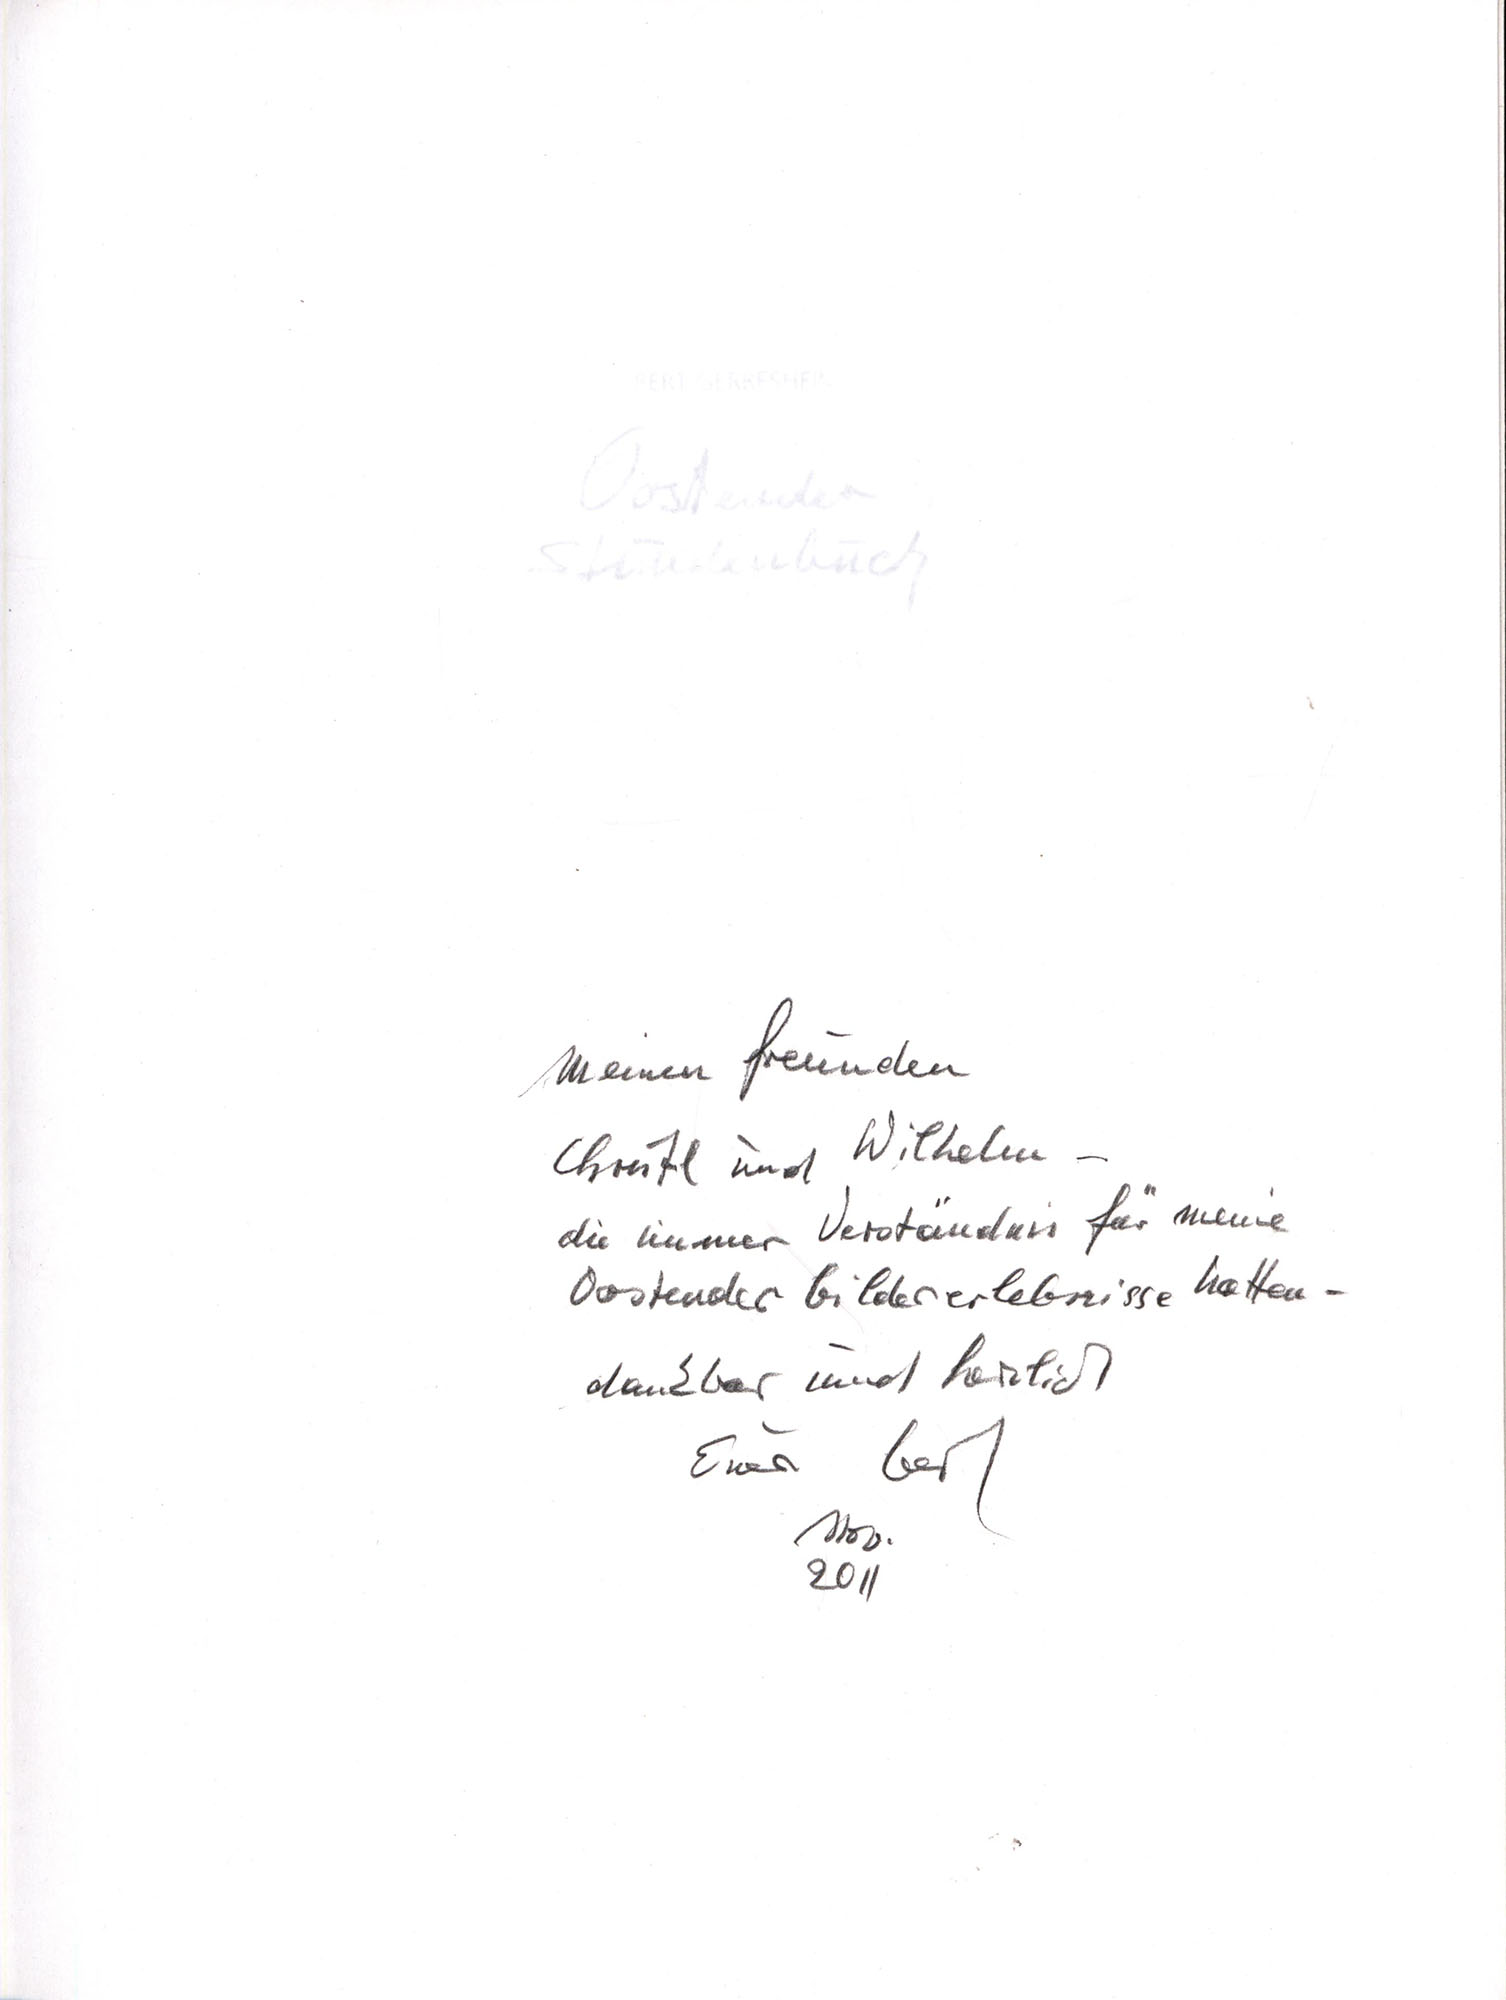 BERT GERRESHEIM
Oostender
Stundenbuch
meinen freunden
Christl und Wilhelm –
die immer Verständnis für meine
Oostender bildererlebnisse hatten –
dankbar und herzlich
Euer bert
Nov.
2011